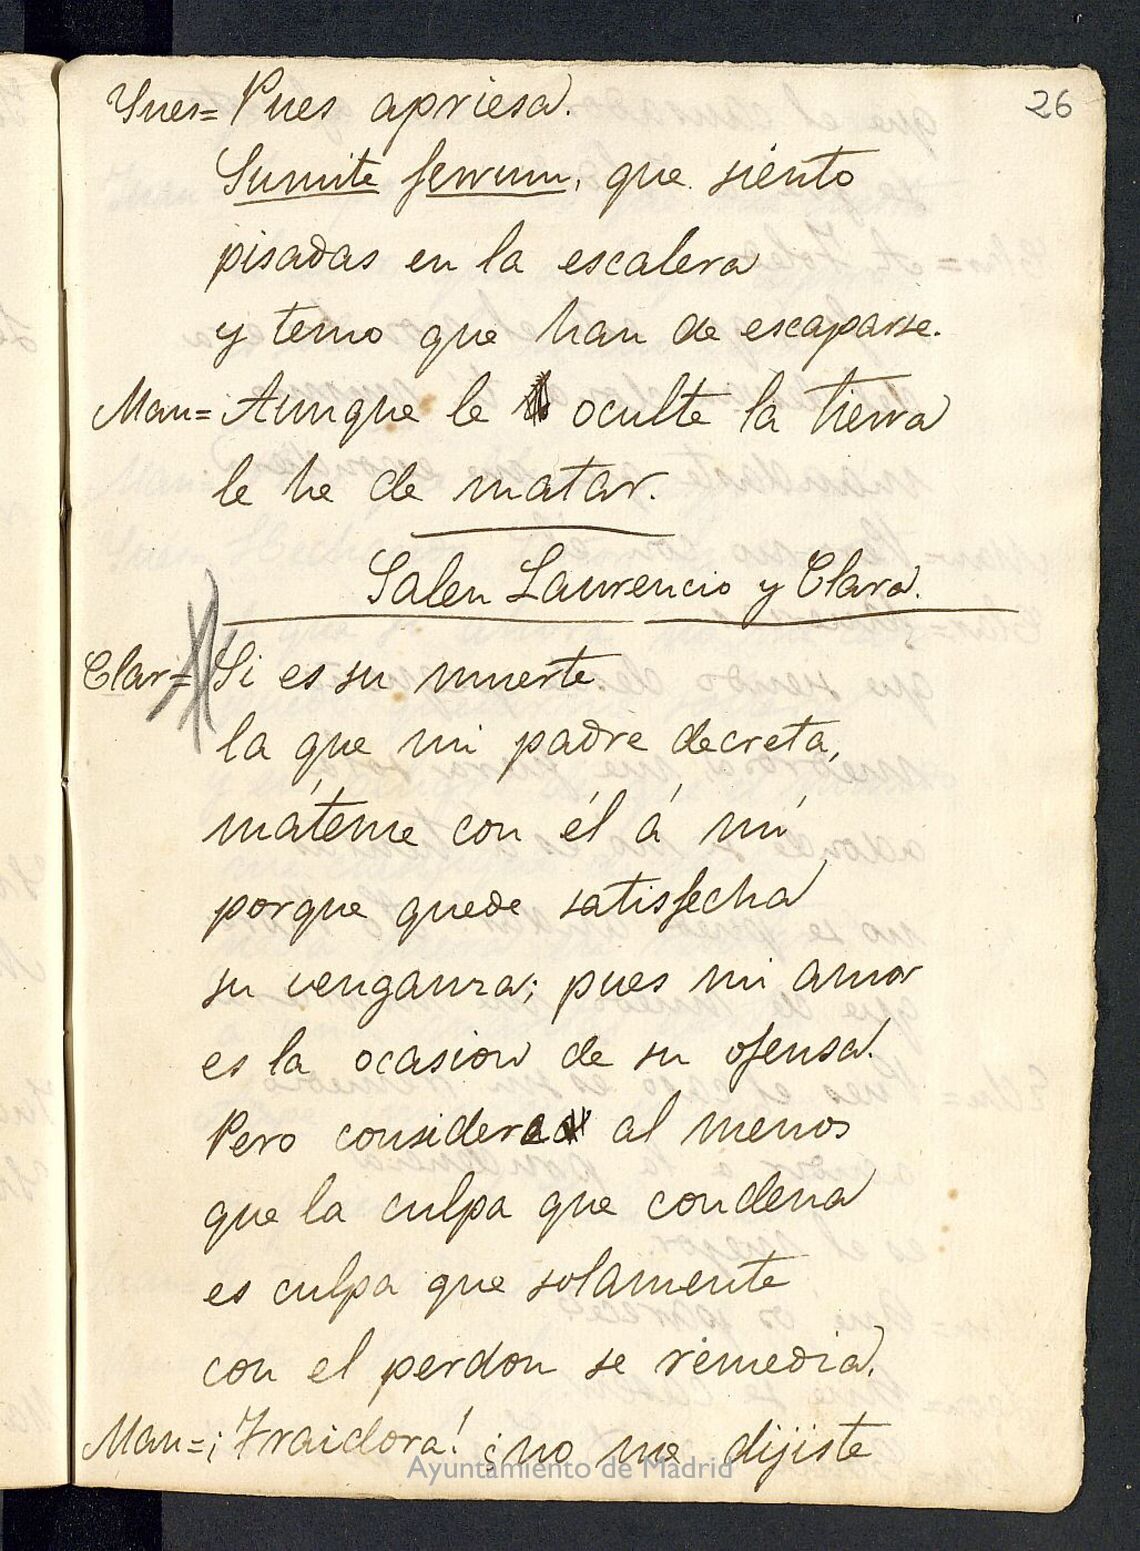 26
Ynes= Pues apriesa.
Sumite ferrum, que siento
pisadas en la escalera
y temo que han de escaparse.
Man= Aunque le oculte la tierra
le he de matar.
Salen Laurencio y Clara.
Clar= Si es su muerte
la que mi padre decreta,
máteme con él á mí
porque quede satisfecha
su venganza; pues mi amor
es la ocasion de su ofensa.
Pero considere al menos
que la culpa que condena
es culpa que solamente
con el perdon se remedia.
Man= ¡Traidora! ¿no me dijiste
Ayuntamiento de Madrid